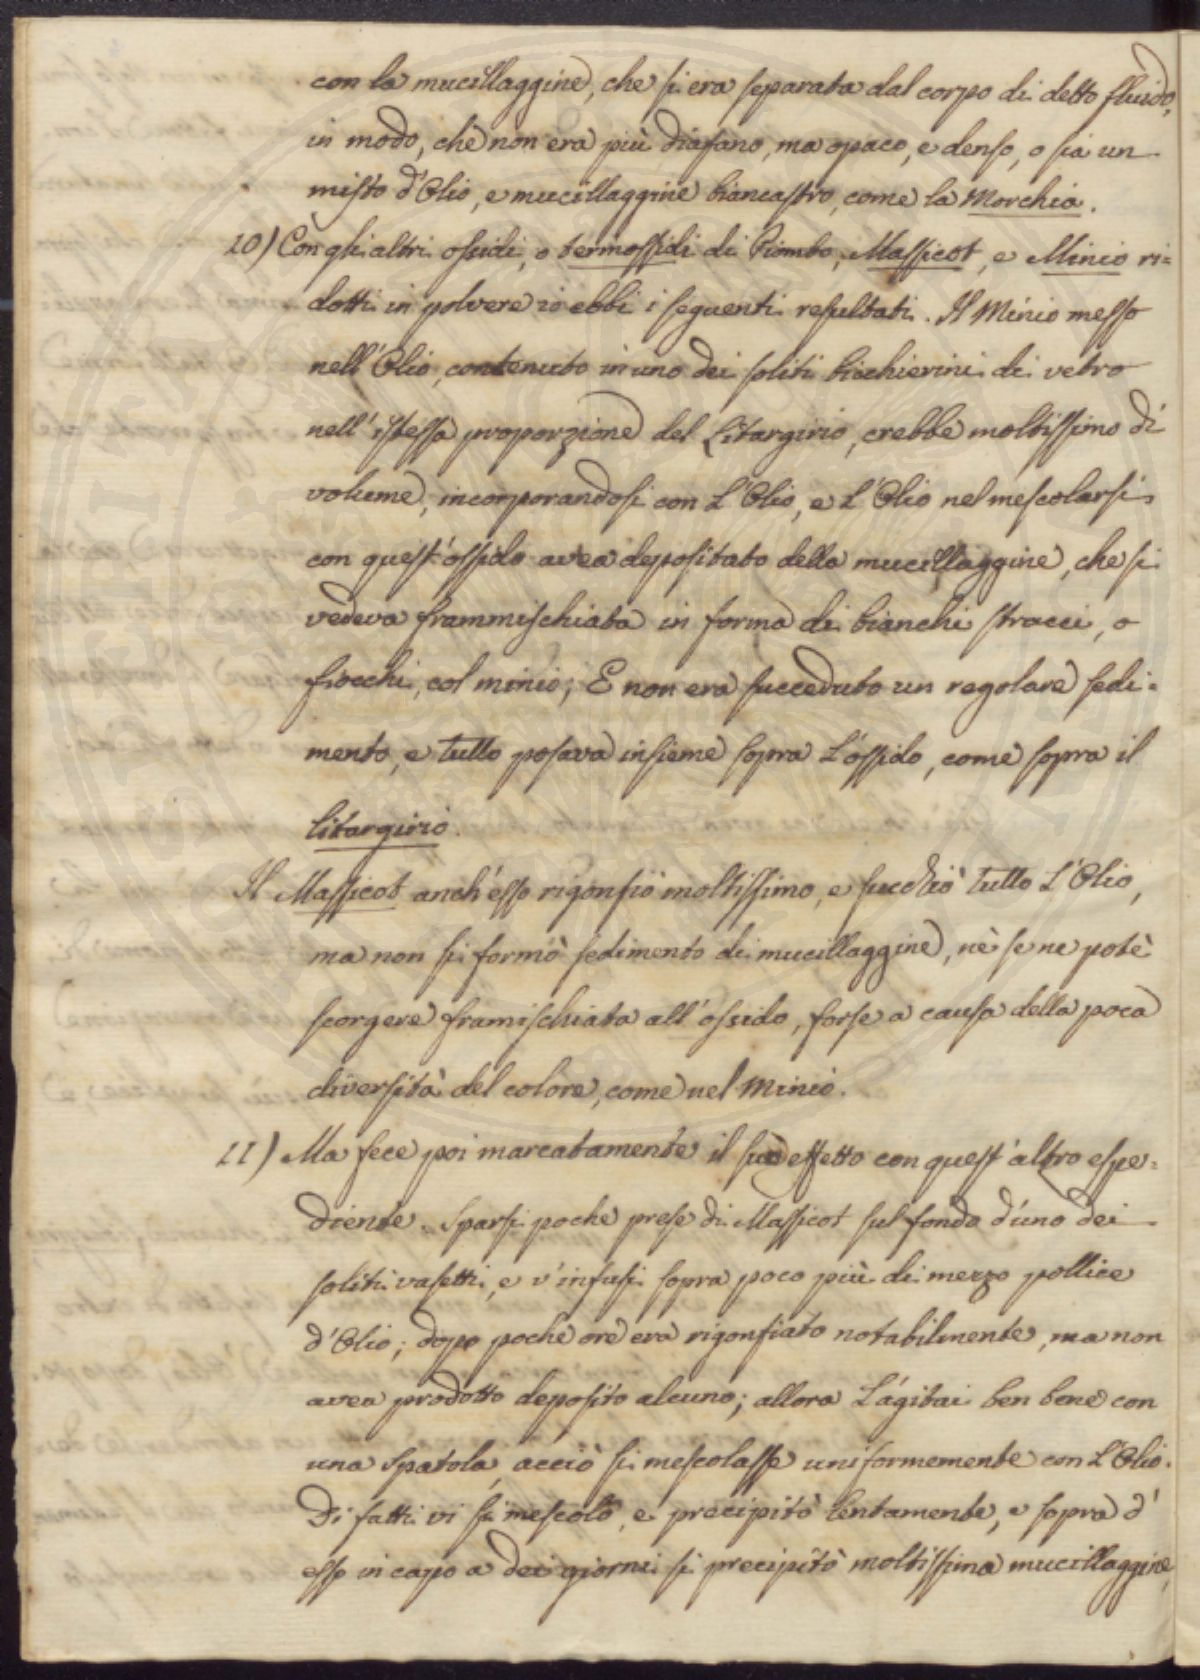 con la mucillaggine, che si era separata dal corpo di detto fluido,
in modo, che non era più diafano, ma opaco, e denso, o sia un
misto d'Olio, e mucillaggine biancastro, come la Morchia.
10) Con gli altri ossidi, o termossidi di Piombo, Massicot, e Minio ri=
dotti in polvere io ebbi i seguenti resultati. Il Minio messo
nell'Olio, contenuto in uno dei soliti bicchierini di vetro
nell'istessa proporzione del Litargirio, crebbe moltissimo di
volume, incorporandosi con L'Olio, e L'Olio nel mescolarsi
con quest'ossido avea depositato della mucillaggine, che si
vedeva frammischiata in forma di bianchi stracci, o
fiocchi, col minio; E non era succeduto un regolare sedi=
mento, e tutto posava insieme sopra L'ossido, come sopra il
litargirio.
Il Massicot anch'esso rigonfiò moltissimo, e succhiò tutto L'Olio,
ma non si formò sedimento di mucillaggine, nè se ne potè
scorgere framischiata all'ossido, forse a causa della poca
diversità del colore, come nel Minio.
11) Ma fece poi marcatamente il suo effetto con quest'altro espe=
diente. Sparsi poche prese di Massicot sul fondo d'uno dei
soliti vasetti, e v'infusi sopra poco più di mezzo pollice
d'Olio; dopo poche ore era rigonfiato notabilmente, ma non
avea prodotto deposito alcuno; allora L'agitai ben bene con
una spatola, acciò si mescolasse uniformemente con L'Olio.
Di fatti vi si mescolò, e precipitò lentamente, e sopra d'
esso in capo a dei giorni si precipitò moltissima mucillaggine,